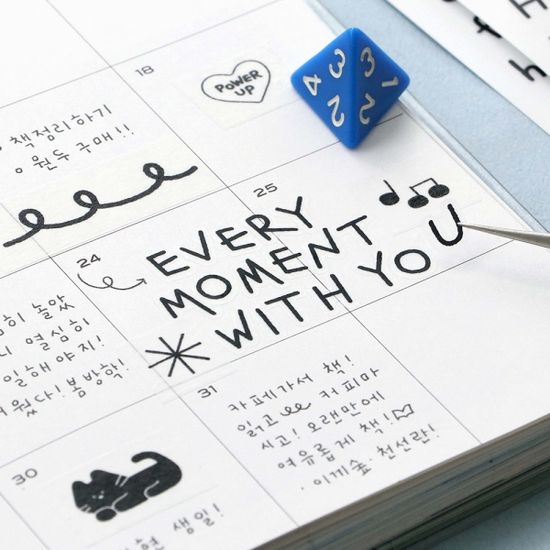 18
POWER
UP
책정리하기
원두 구매!!
25
24
EVERY
MOMENT
WITH YOU
히 놀았
니 열심히
일해야지!
웠다! 봄방학!
31
카페가서 책!
읽고 커피마
시고! 오랜만에
여유롭게 책!
· 이끼숲 · 천선란!
30
현 생일!
4 3 2
3 1 2